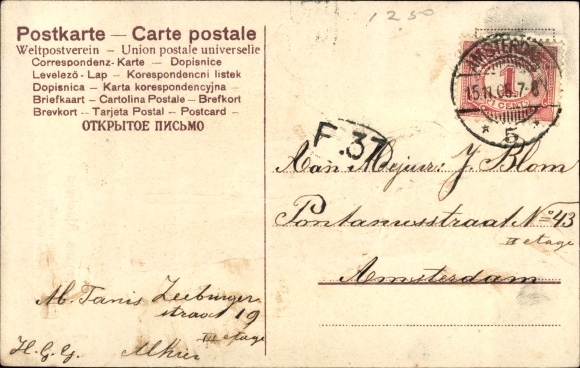 Postkarte — Carte postale
Weltpostverein – Union postale universelle
Correspondenz-Karte — Dopisnice
Levelező-Lap — Korespondencni listek
Dopisnica – Karta korespondencyjna –
Briefkaart – Cartolina Postale – Brefkort
Brevkort -- Tarjeta Postal – Postcard –
ОТКРЫТОЕ ПИСЬМО
1250
AMSTERDAM
15.11.06.7-8
5
1
1 CENT
F.37
Aan Mejuir: J. Blom
Pontanusstraat No 43
II etage
Amsterdam
M. Tanis Zeeburger
straat 19
III etage
H.G.G. Alhier